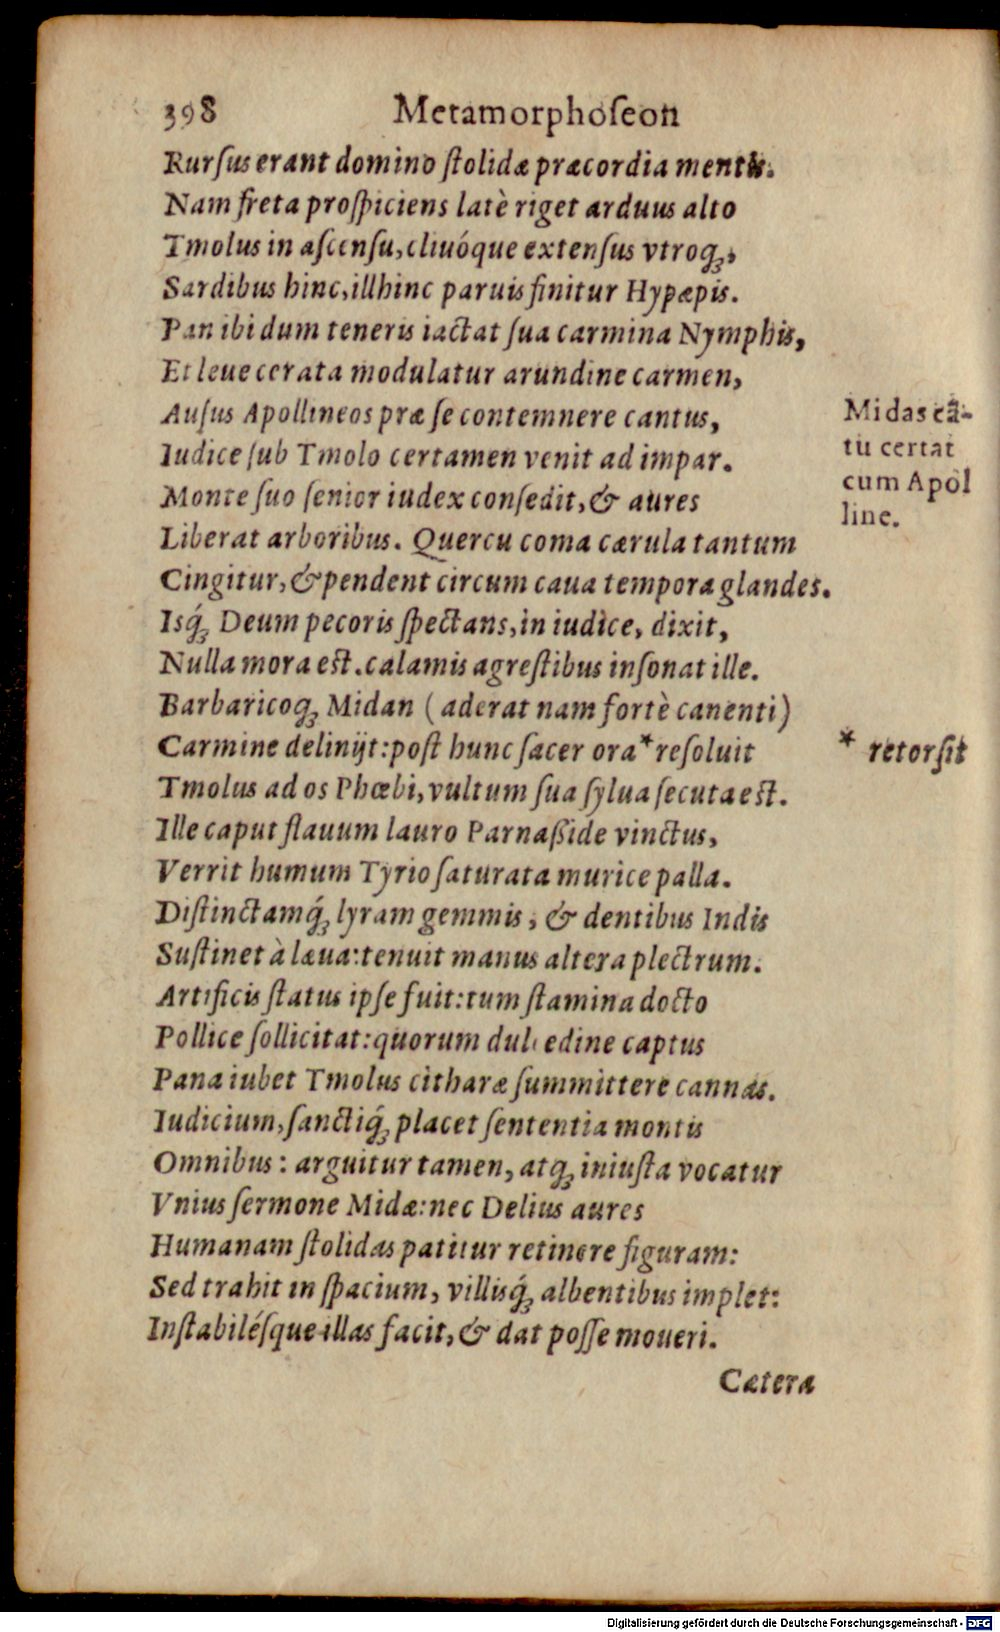 398 Metamorphoſeon
Rurſus erant domino ſtolidæ præcordia mentis.
Nam freta proſpiciens latè riget arduus alto
Tmolus in aſcenſu, cliuóque extenſus vtroq́ꝫ,
Sardibus hinc, illhinc paruis finitur Hypæpis.
Pan ibi dum teneris iactat ſua carmina Nymphis,
Et leue cerata modulatur arundine carmen,
Auſus Apollineos præ ſe contemnere cantus,
Iudice ſub Tmolo certamen venit ad impar.
Monte ſuo ſenior iudex conſedit, & aures
Liberat arboribus. Quercu coma cærula tantum
Cingitur, & pendent circum caua tempora glandes.
Isq́ꝫ Deum pecoris ſpectans, in iudice, dixit,
Nulla mora eſt. calamis agreſtibus inſonat ille.
Barbaricoqꝫ Midan (aderat nam fortè canenti)
Carmine delinijt: poſt hunc ſacer ora * reſoluit
Tmolus ad os Phœbi, vultum ſua ſylua ſecuta eſt.
Ille caput flauum lauro Parnaßide vinctus,
Verrit humum Tyrio ſaturata murice palla.
Diſtinctamq́ꝫ lyram gemmis, & dentibus Indis
Suſtinet à læua: tenuit manus altera plectrum.
Artificis ſtatus ipſe fuit: tum ſtamina docto
Pollice ſollicitat: quorum dul edine captus
Pana iubet Tmolus citharæ ſummittere cannas.
Iudicium, ſanctiq́ꝫ placet ſententia montis
Omnibus: arguitur tamen, atqꝫ iniuſta vocatur
Vnius ſermone Midæ: nec Delius aures
Humanam ſtolidas patitur retinere figuram:
Sed trahit in ſpacium, villisq́ꝫ albentibus implet:
Inſtabiléſque illas facit, & dat poſſe moueri.
Cætera
Midas cã-
tu certat
cum Apol
line.
* retorſit
Digitalisierung gefördert durch die Deutsche Forschungsgemeinschaft - DFG